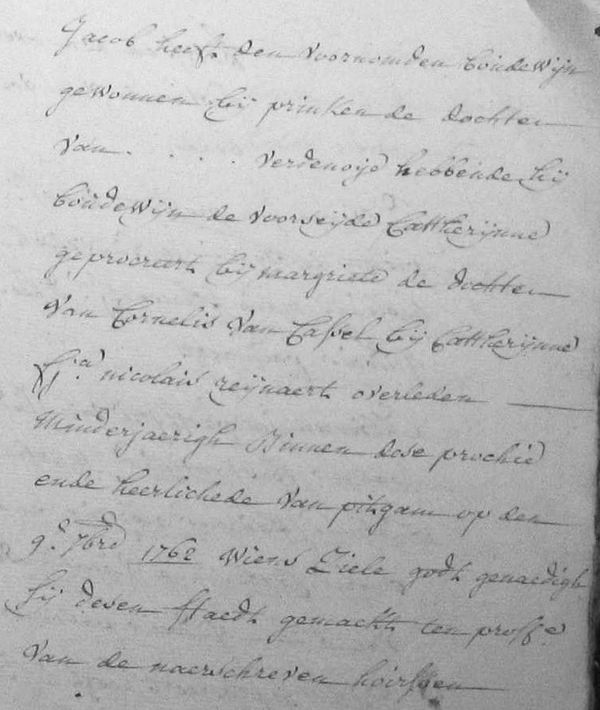 Jacob heeft den voornomden boudewijn
gewonnen bij prinken de dochter
van . . . . verdenoije hebbende hij
boudewijn de voorseijde Cattherijnne
geprocreert bij margriete de dochter
van Cornelis van Cassel bij Cattherijnne
fa nicolais reijnaert overleden
minderjaerigh binnen dese prochie
ende heerlichede van pitgam op den
9e 7bre 1762 wiens ziele godt genaedigh
sij desen staedt gemackt ten proffe
van de naerschreven hoirssen